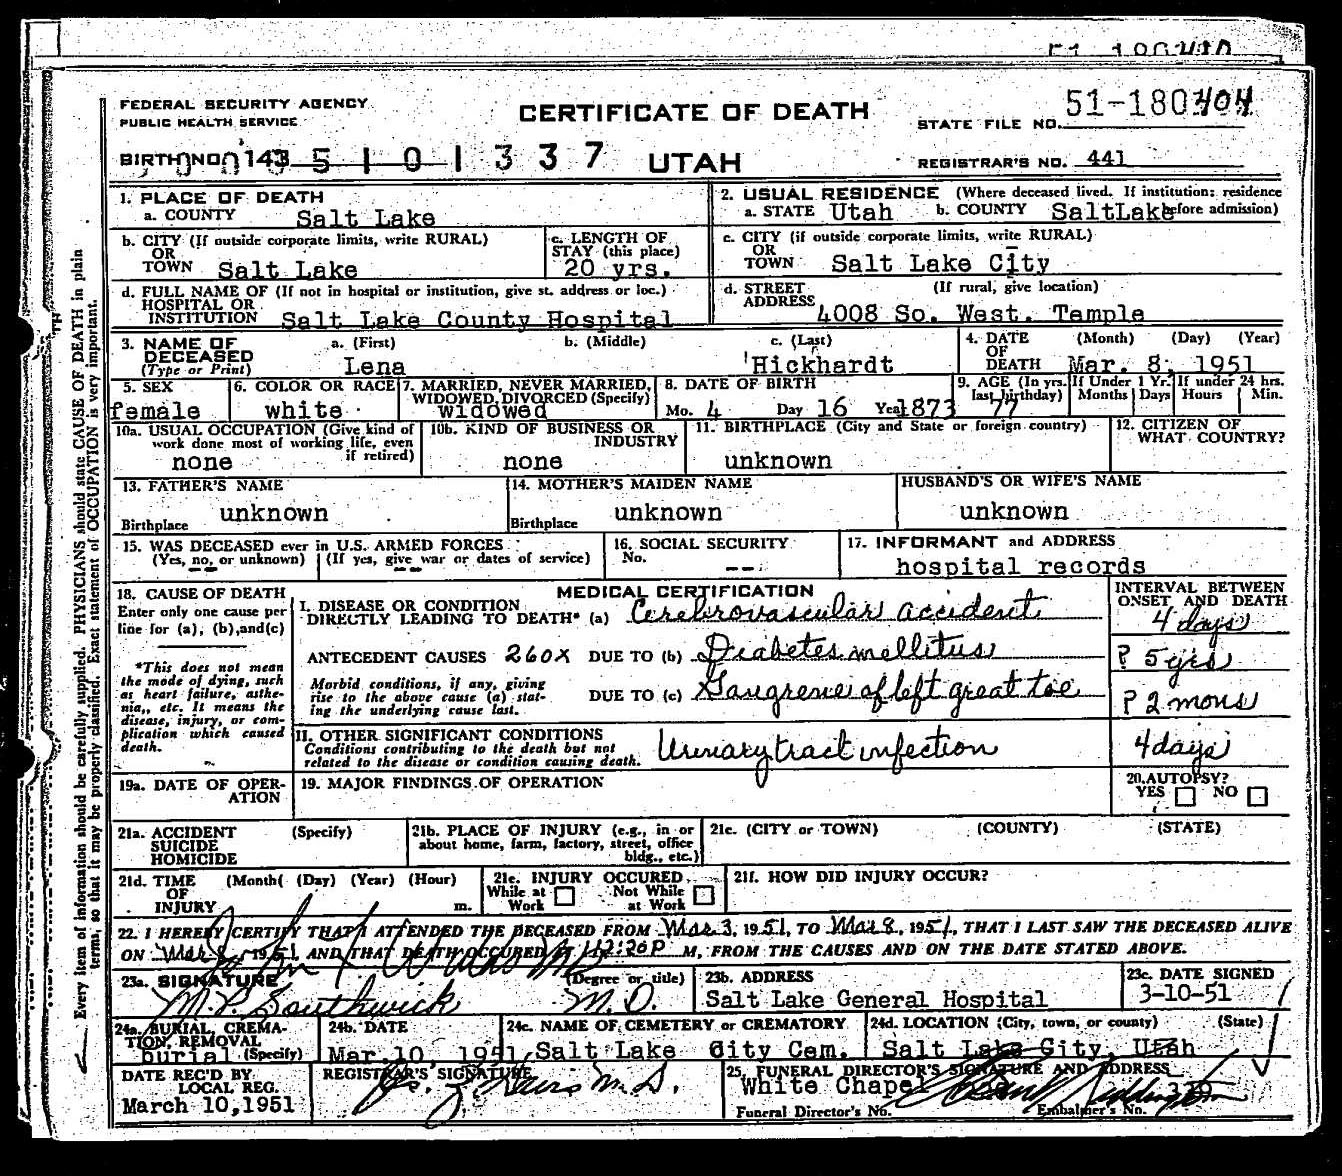 FEDERAL SECURITY AGENCY
PUBLIC HEALTH SERVICE
CERTIFICATE OF DEATH
STATE FILE NO. 51-180404
BIRTH NO. 143 5 1 0 1 3 3 7 UTAH
REGISTRAR'S NO. 441
1. PLACE OF DEATH
a. COUNTY Salt Lake
2. USUAL RESIDENCE (Where deceased lived. If institution: residence before admission)
a. STATE Utah b. COUNTY SaltLake
b. CITY (If outside corporate limits, write RURAL)
OR
TOWN Salt Lake
c. LENGTH OF
STAY (this place)
20 yrs.
c. CITY (if outside corporate limits, write RURAL)
OR
TOWN Salt Lake City
d. FULL NAME OF (If not in hospital or institution, give st. address or loc.)
HOSPITAL OR
INSTITUTION Salt Lake County Hospital
d. STREET (If rural, give location)
ADDRESS 4008 So. West. Temple
3. NAME OF
DECEASED
(Type or Print)
a. (First) b. (Middle) c. (Last)
Lena Hickhardt
4. DATE (Month) (Day) (Year)
OF
DEATH Mar. 8, 1951
5. SEX
female
6. COLOR OR RACE
white
7. MARRIED, NEVER MARRIED,
WIDOWED, DIVORCED (Specify)
widowed
8. DATE OF BIRTH
Mo. 4 Day 16 Year 1873
9. AGE (In yrs. last birthday)
77
If Under 1 Yr.
Months Days
If under 24 hrs.
Hours Min.
10a. USUAL OCCUPATION (Give kind of
work done most of working life, even
if retired)
none
10b. KIND OF BUSINESS OR
INDUSTRY
none
11. BIRTHPLACE (City and State or foreign country)
unknown
12. CITIZEN OF
WHAT COUNTRY?
13. FATHER'S NAME
unknown
Birthplace
14. MOTHER'S MAIDEN NAME
unknown
Birthplace
HUSBAND'S OR WIFE'S NAME
unknown
15. WAS DECEASED ever in U.S. ARMED FORCES
(Yes, no, or unknown) (If yes, give war or dates of service)
-- --
16. SOCIAL SECURITY
No. --
17. INFORMANT and ADDRESS
hospital records
18. CAUSE OF DEATH
Enter only one cause per
line for (a), (b), and (c)
*This does not mean
the mode of dying, such
as heart failure, asthe-
nia, etc. It means the
disease, injury, or com-
plication which caused
death.
MEDICAL CERTIFICATION
INTERVAL BETWEEN
ONSET AND DEATH
I. DISEASE OR CONDITION
DIRECTLY LEADING TO DEATH* (a) Cerebrovascular accident 4 days
ANTECEDENT CAUSES 260X DUE TO (b) Diabetes mellitus ? 5 yrs
Morbid conditions, if any, giving
rise to the above cause (a) stat-
ing the underlying cause last.
DUE TO (c) Gangrene of left great toe ? 2 mons
II. OTHER SIGNIFICANT CONDITIONS
Conditions contributing to the death but not
related to the disease or condition causing death.
Urinary tract infection 4 days
19a. DATE OF OPER-
ATION
19. MAJOR FINDINGS OF OPERATION
20. AUTOPSY?
YES NO
21a. ACCIDENT (Specify)
SUICIDE
HOMICIDE
21b. PLACE OF INJURY (e.g., in or
about home, farm, factory, street, office
bldg., etc.)
21c. (CITY or TOWN) (COUNTY) (STATE)
21d. TIME (Month( (Day) (Year) (Hour)
OF
INJURY m.
21e. INJURY OCCURED
While at Work Not While at Work
21f. HOW DID INJURY OCCUR?
22. I HEREBY CERTIFY THAT I ATTENDED THE DECEASED FROM Mar 3, 1951, TO Mar 8, 1951, THAT I LAST SAW THE DECEASED ALIVE
ON Mar 8, 1951 AND THAT DEATH OCCURED AT 12:20P M, FROM THE CAUSES AND ON THE DATE STATED ABOVE.
23a. SIGNATURE (Degree or title)
M. P. Southwick M.D.
23b. ADDRESS
Salt Lake General Hospital
23c. DATE SIGNED
3-10-51
24a. BURIAL, CREMA-
TION, REMOVAL
burial (Specify)
24b. DATE
Mar. 10, 1951
24c. NAME OF CEMETERY or CREMATORY
Salt Lake City Cem.
24d. LOCATION (City, town, or county) (State)
Salt Lake City, Utah
DATE REC'D BY
LOCAL REG.
March 10, 1951
REGISTRAR'S SIGNATURE
M.D.
25. FUNERAL DIRECTOR'S SIGNATURE AND ADDRESS
White Chapel
Funeral Director's No. Embalmer's No.
Every item of information should be carefully supplied. PHYSICIANS should state CAUSE OF DEATH in plain
terms, so that it may be properly classified. Exact statement of OCCUPATION is very important.